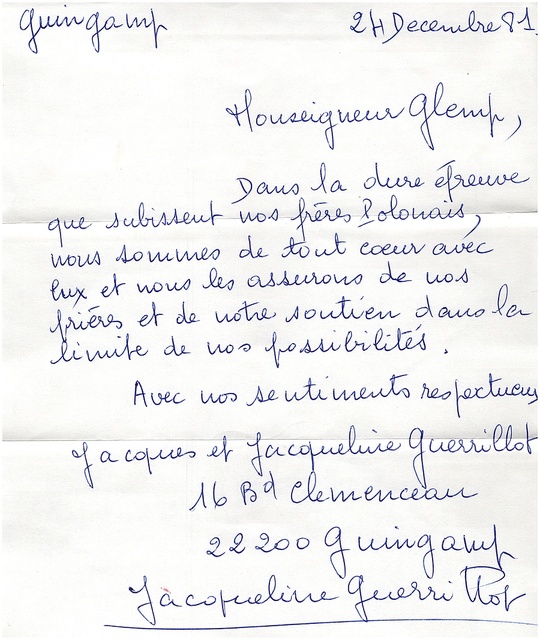 Guingamp 24 Decembre 81.
Monseigneur Glemp,
Dans la dure épreuve
que subissent nos frères Polonais,
nous sommes de tout coeur avec
eux et nous les assurons de nos
prières et de notre soutien dans la
limite de nos possibilités.
Avec nos sentiments respectueux
Jacques et Jacqueline Guerrillot
16 Bd Clemenceau
22200 Guingamp
Jacqueline Guerrillot